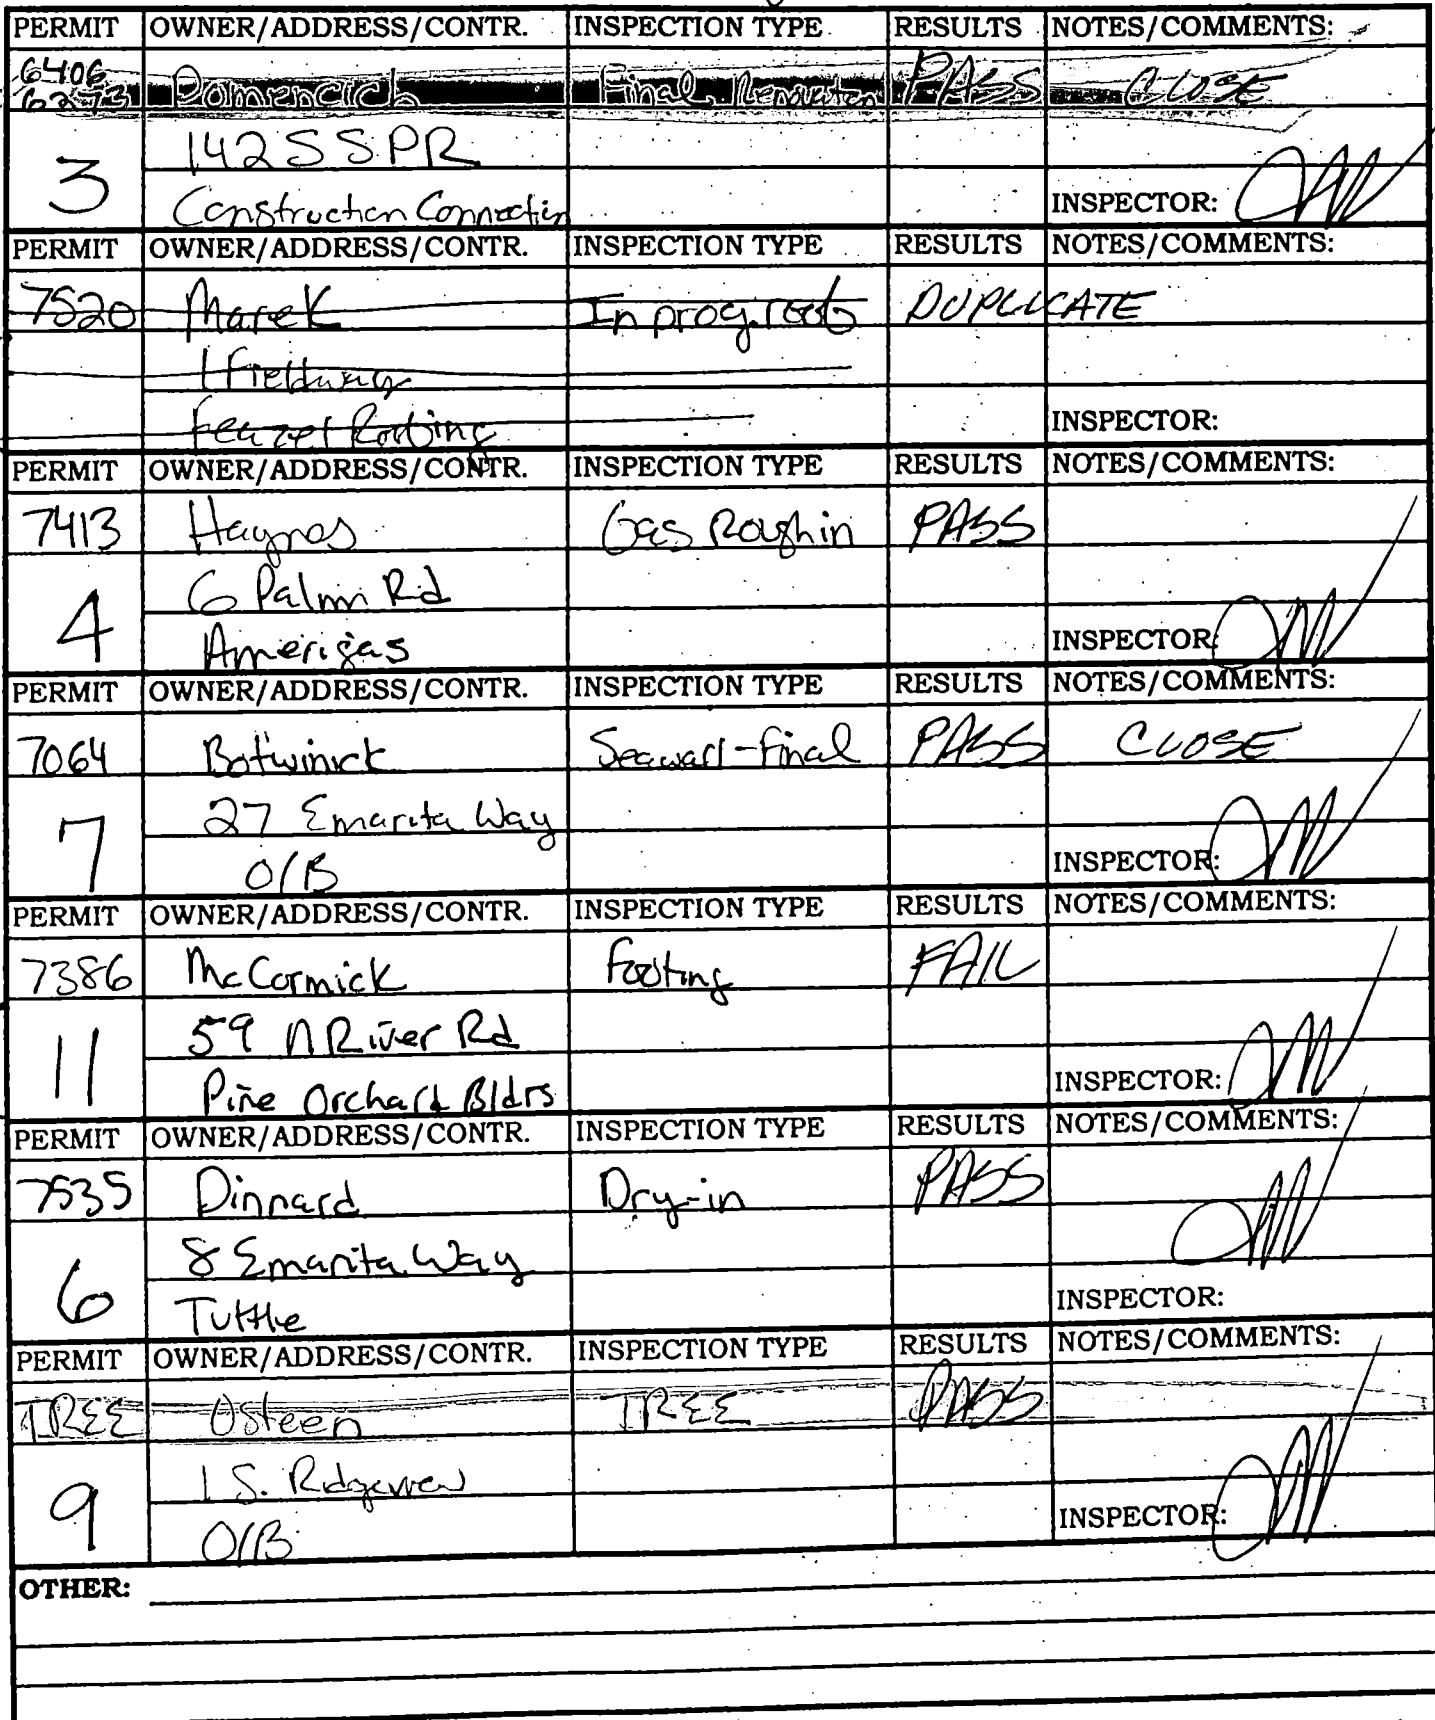 PERMIT OWNER/ADDRESS/CONTR. INSPECTION TYPE RESULTS NOTES/COMMENTS:
6406
6273 Domencich Final Renovation PASS CLOSE
3 142 S S.P.R
Construction Connection INSPECTOR:
PERMIT OWNER/ADDRESS/CONTR. INSPECTION TYPE RESULTS NOTES/COMMENTS:
7520 Marek In prog. roof DUPLICATE
1 Fieldway
Feazel Roofing INSPECTOR:
PERMIT OWNER/ADDRESS/CONTR. INSPECTION TYPE RESULTS NOTES/COMMENTS:
7413 Haynes Gas Rough in PASS
4 6 Palm Rd
Amerigas INSPECTOR:
PERMIT OWNER/ADDRESS/CONTR. INSPECTION TYPE RESULTS NOTES/COMMENTS:
7064 Botwinick Seawall-Final PASS CLOSE
7 27 Emarita Way
O/B INSPECTOR:
PERMIT OWNER/ADDRESS/CONTR. INSPECTION TYPE RESULTS NOTES/COMMENTS:
7386 McCormick Footing FAIL
11 59 N River Rd
Pine Orchard Bldrs INSPECTOR:
PERMIT OWNER/ADDRESS/CONTR. INSPECTION TYPE RESULTS NOTES/COMMENTS:
7535 Dinnard Dry-in PASS
6 8 Emarita Way
Tuttle INSPECTOR:
PERMIT OWNER/ADDRESS/CONTR. INSPECTION TYPE RESULTS NOTES/COMMENTS:
TREE Osteen TREE PASS
9 1 S. Ridgeview
O/B INSPECTOR:
OTHER: